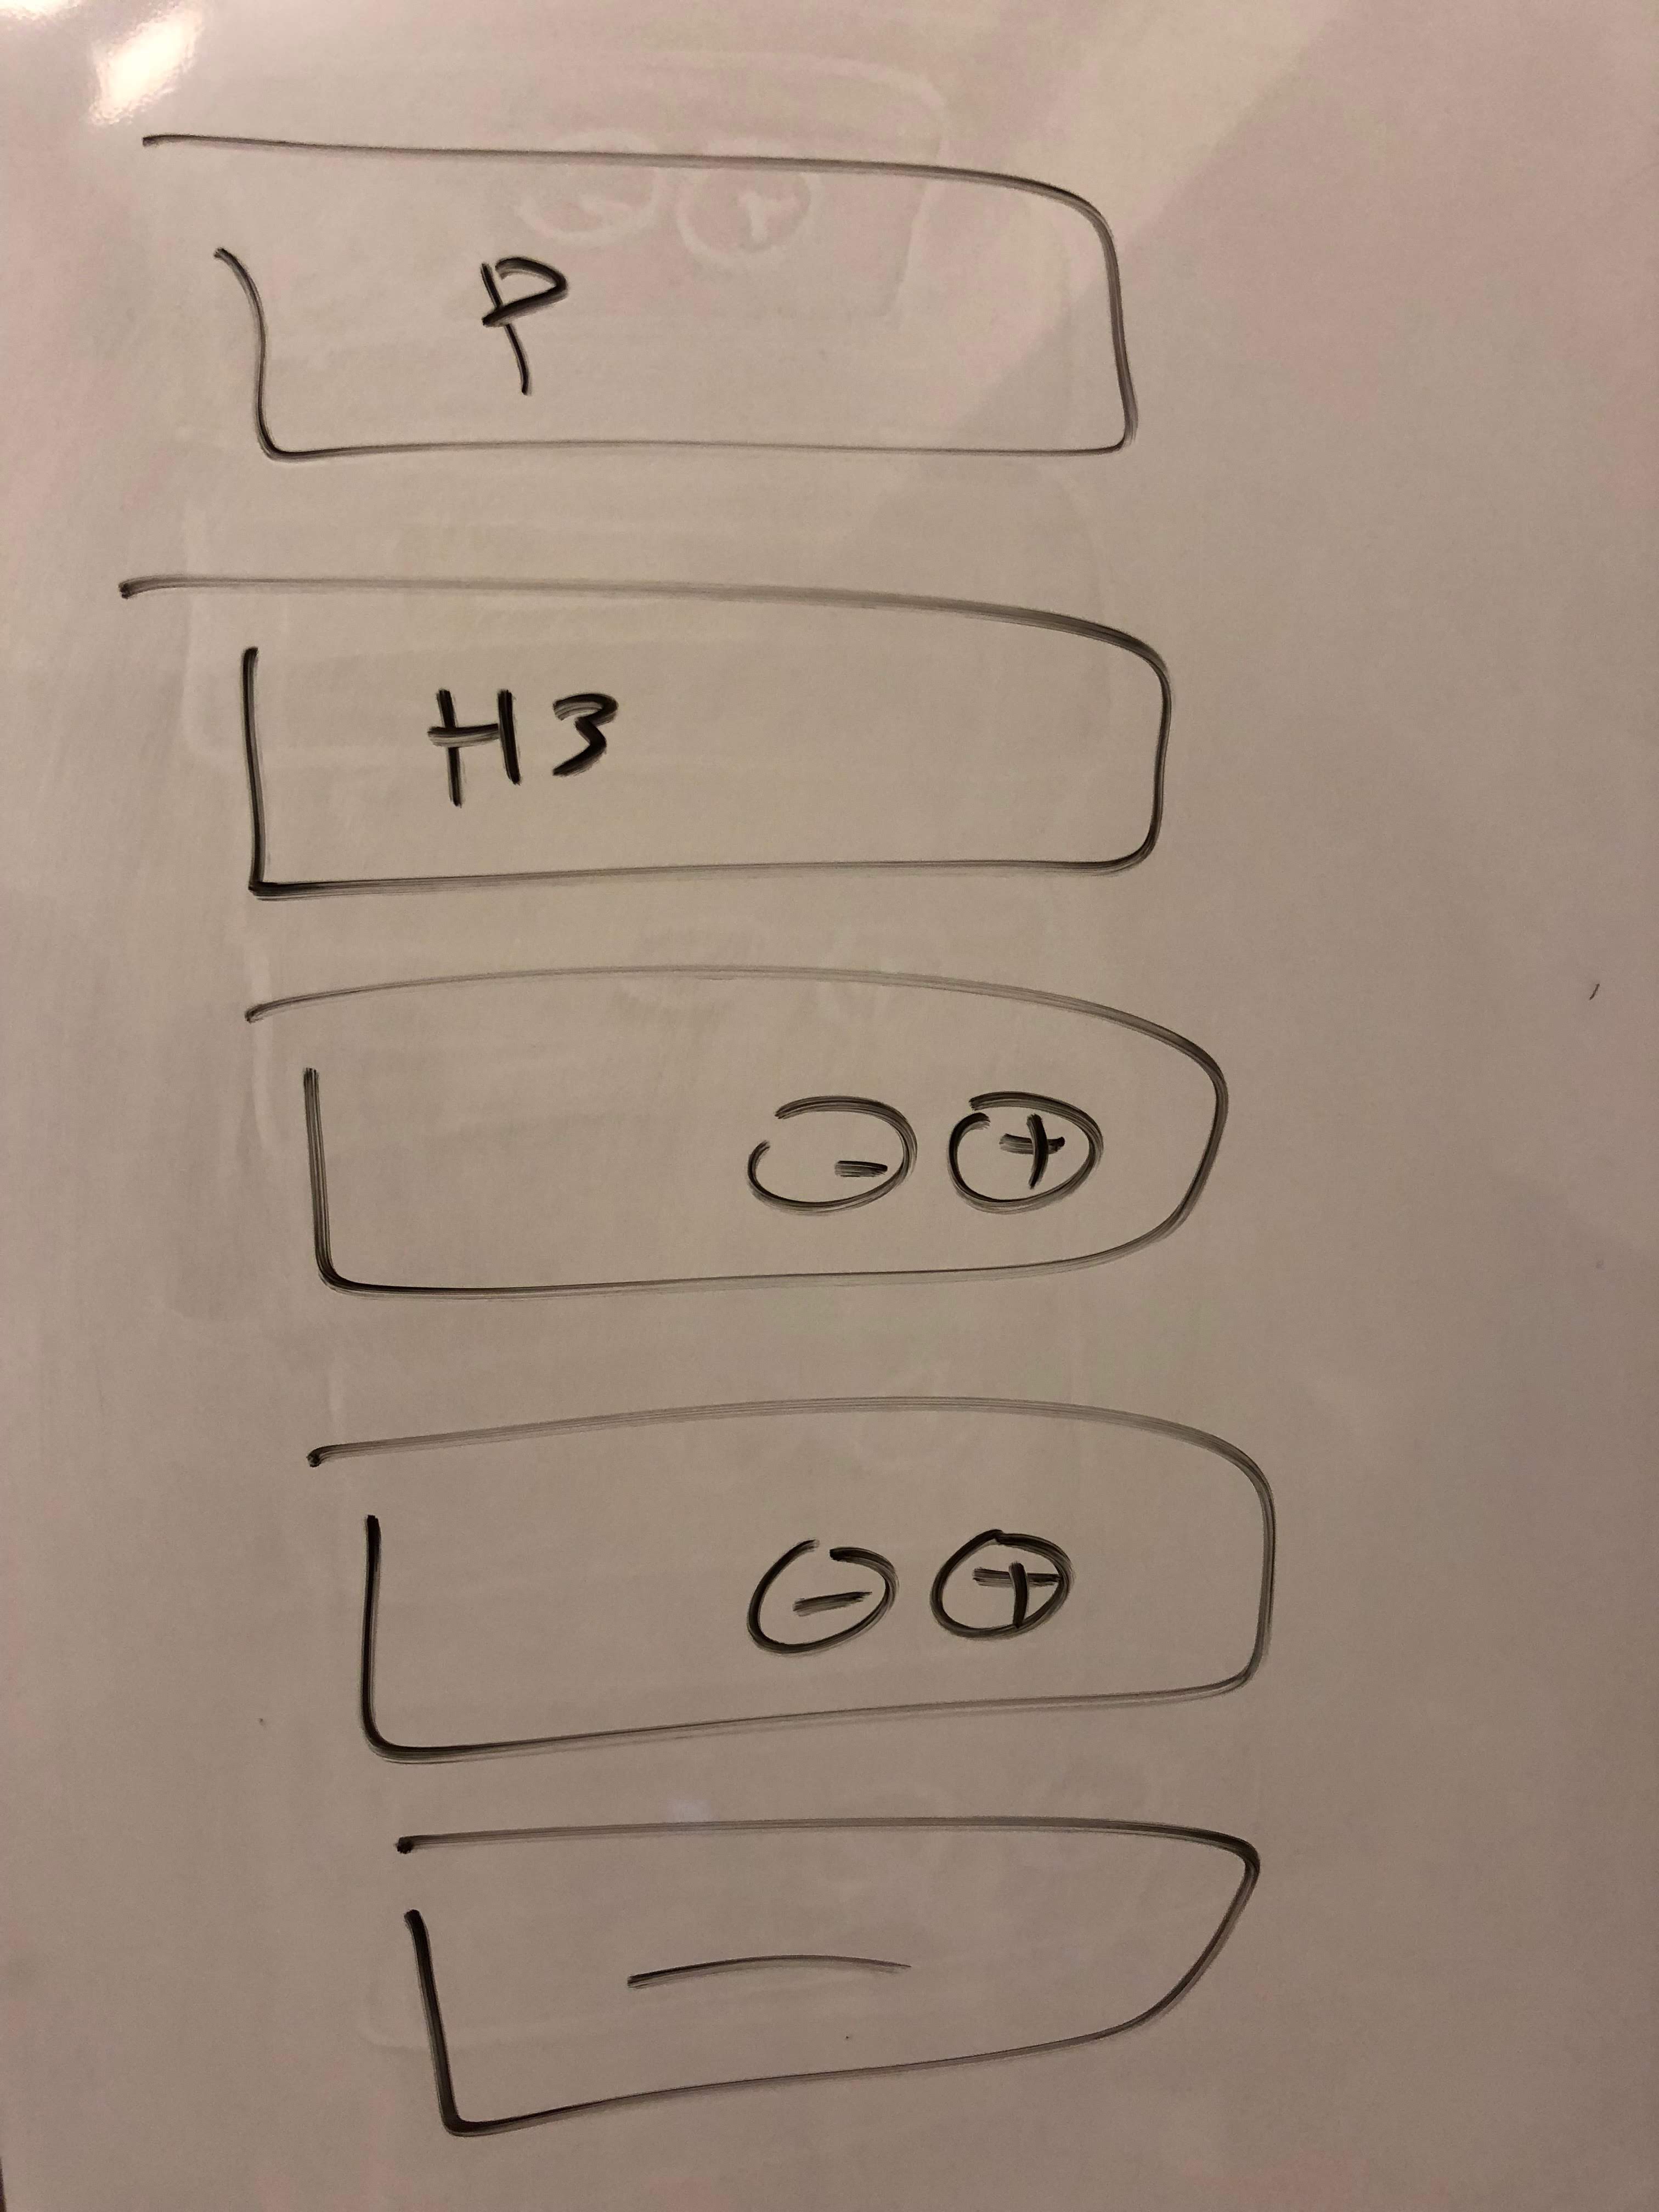 P
H3
- +
- +